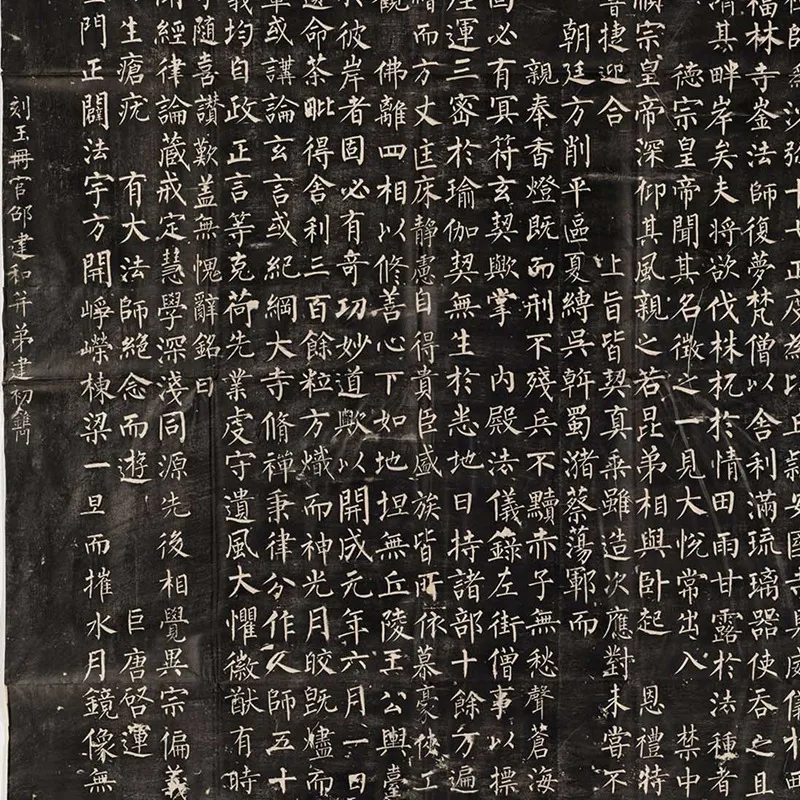 師為沙弥十七正度為比丘隸安國寺具威儀於西
福林寺崟法師復夢梵僧以舍利滿琉璃器使吞之且
謂其畔岸矣夫將欲伐株杌於情田雨甘露於法種者
德宗皇帝聞其名徵之一見大悅常出入 禁中
順宗皇帝深仰其風親之若昆弟相與卧起 恩禮特
音捷迎合 上旨皆契真乘雖造次應對未嘗不
朝廷方削平區夏縛吳斡蜀潴蔡蕩鄆而
親奉香燈既而刑不殘兵不黷赤子無愁聲蒼海
固必有冥符玄契歟掌 內殿法儀錄左街僧事以摽
座運三密於瑜伽契無生於悉地日持諸部十餘万遍
繒而方丈匡床靜慮自得貴臣盛族皆所依慕豪俠工
觀 佛離四相以脩善心下如地坦無丘陵王公輿臺
於彼岸者固必有奇功妙道歟以開成元年六月一日
遽命荼毗得舍利三百餘粒方熾而神光月皎既燼而
輩或講論玄言或紀綱大寺脩禪秉律分作人師五十
義均自政正言等克荷先業虔守遺風大懼徽猷有時
隨喜讚歎蓋無愧辭銘曰
閑經律論藏戒定慧學深淺同源先後相覺異宗偏義
生瘡疣 有大法師絕念而遊 巨唐啓運
三門正闢法宇方開崢嶸棟梁一旦而摧水月鏡像無
刻玉冊官邵建和并弟建初鐫